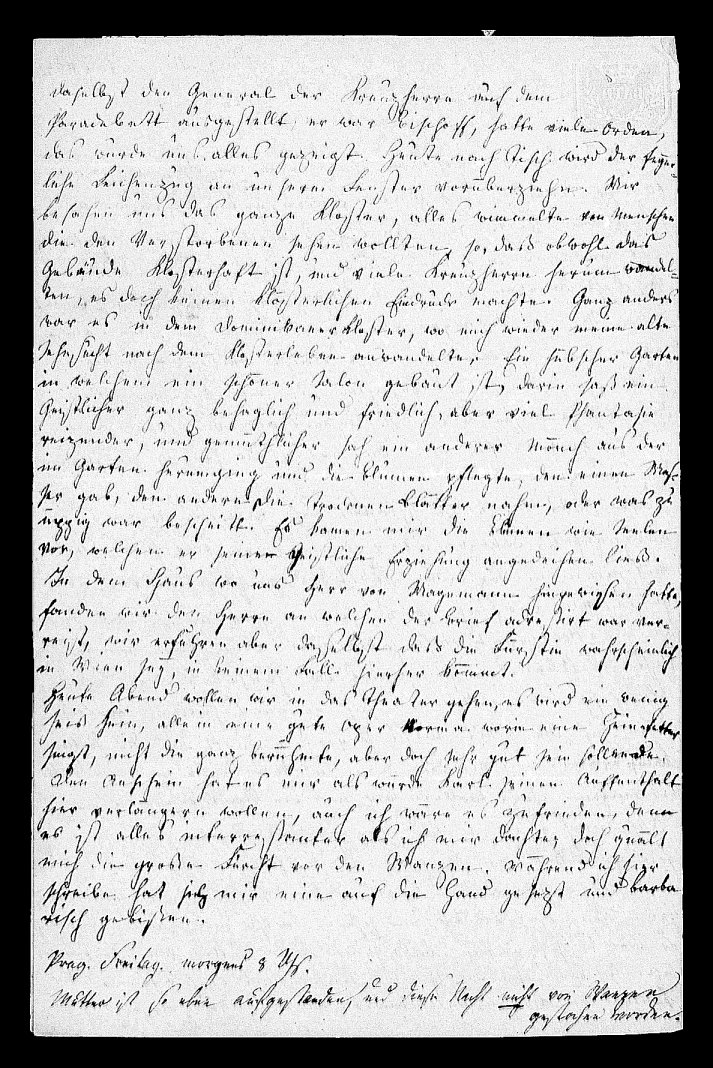 daselbst den General der Kreuzherrn auf dem
Paradebett ausgestellt, er war Bischoff, hatte viele Orden,
das wurde uns alles gezeigt. Heute nach Tisch wird der feyer-
liche Leichenzug an unserm Fenster vorüberziehn. Wir
besahen uns das ganze Kloster, alles wimmelte von Menschen
die den Verstorbenen sehen wollten, so, daß obwohl das
Gebäude Klosterhaft ist, und viele Kreuzherrn herum wandel-
ten, es doch keinen klösterlichen Eindruck machte. Ganz anders
war es in dem Dominikaner Kloster, wo mich wieder meine alte
Sehnsucht nach dem Klosterleben anwandelte. Ein hübscher Garten
in welchem ein schöner Salon gebaut ist, darin saß ein
Geistlicher ganz behaglich und friedlich, aber viel Phantasie
reizender, und gemüthlicher sah ein anderer Mönch aus der
im Garten herumging und die Blumen pflegte, den einen Was-
ser gab, den andern die trocknen Blätter nahm, oder was zu
üppig war beschnitt. Es kamen mir die Blumen wie Seelen
vor, welchen er seine geistliche Erziehung angedeihen ließ.
In dem Haus wo uns Herr von Wagemann hingewiesen hatte,
fanden wir den Herrn an welchen der Brief adressirt war ver-
reist, wir erfuhren aber daselbst daß die Fürstin wahrscheinlich
in Wien sey, in keinem Fall hierher kommt.
Heute Abend wollen wir in das Theater gehen, es wird ein wenig
heis sein, allein eine gute Oper Norma worin eine Heinefetter
singt, nicht die ganz berühmte, aber doch sehr gut sein sollende.
Den Anschein hat es mir als würde Karl seinen Auffenthalt
hier verlängern wollen, auch ich wäre es zufrieden, denn
es ist alles interressanter als ich mir dachte, doch quält
mich die große Furcht vor den Wanzen. Während ich hier
schreibe hat sich mir eine auf die Hand gesezt und barba
risch gebißen.
Prag. Freitag. morgens 8 Uhr.
Mutter ist so eben aufgestanden, und diese Nacht nicht von Wanzen
gestochen worden.